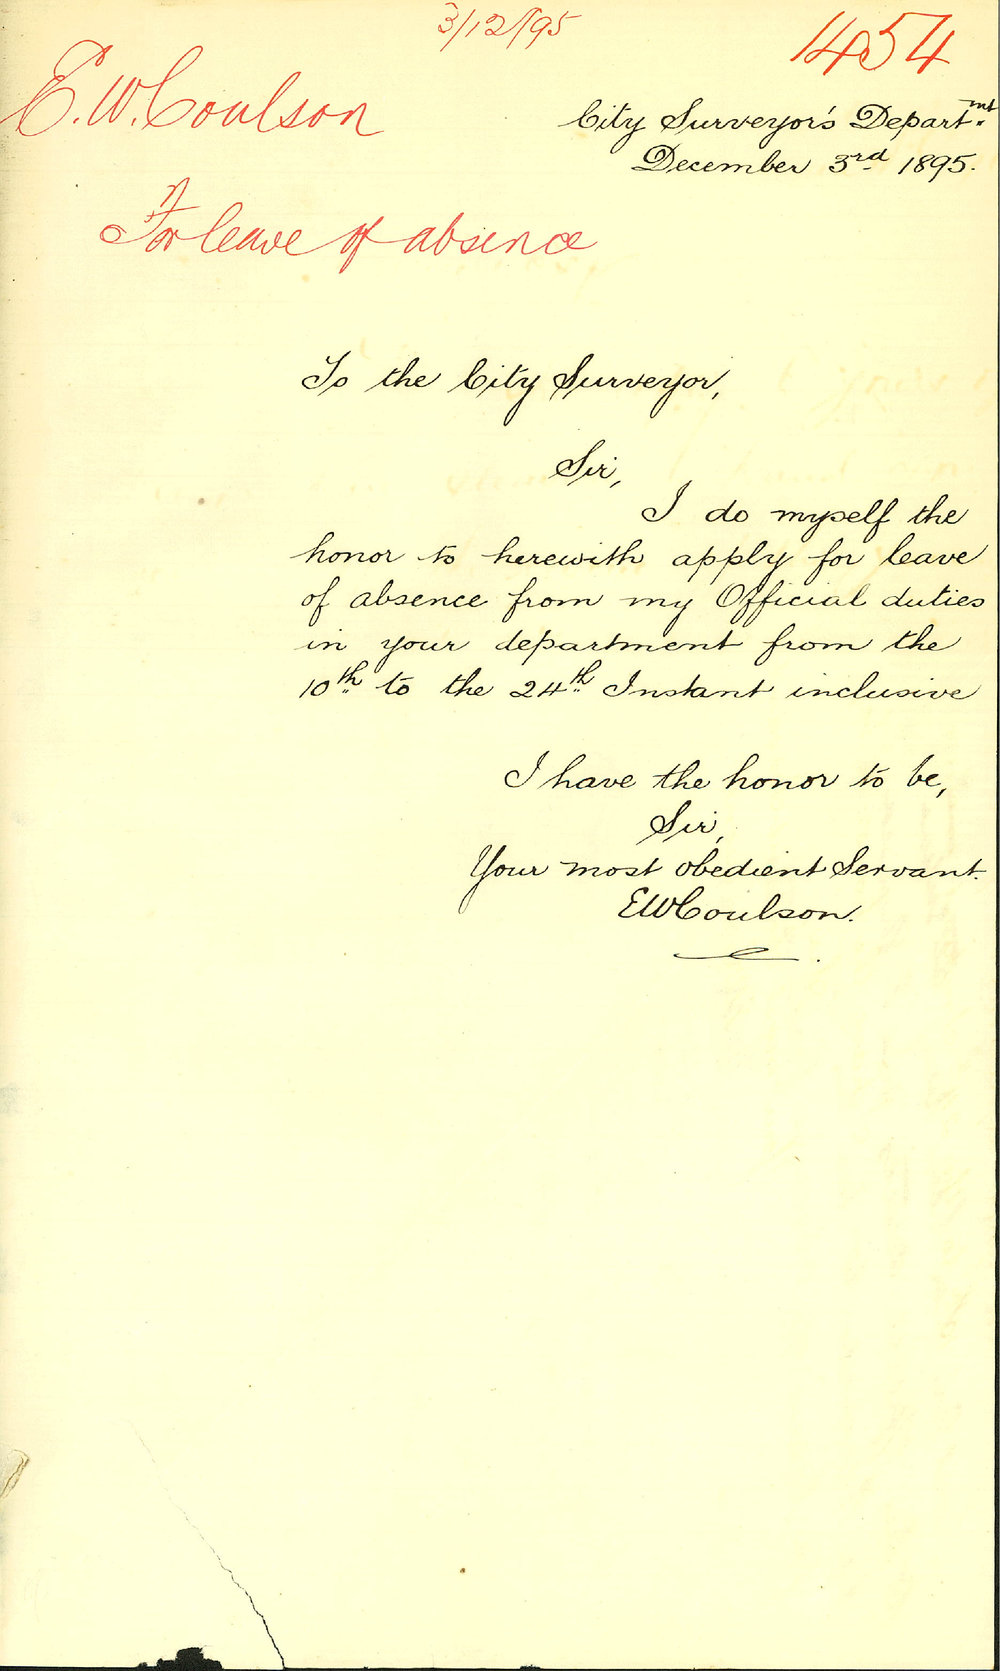 3/12/95
1454
E.W. Coulson
City Surveyor's Depart.mt
December 3rd 1895.
For leave of absence
To the City Surveyor,
Sir,
I do myself the
honor to herewith apply for leave
of absence from my Official duties
in your department from the
10th to the 24th Instant inclusive
I have the honor to be,
Sir,
Your most obedient Servant.
EWCoulson.